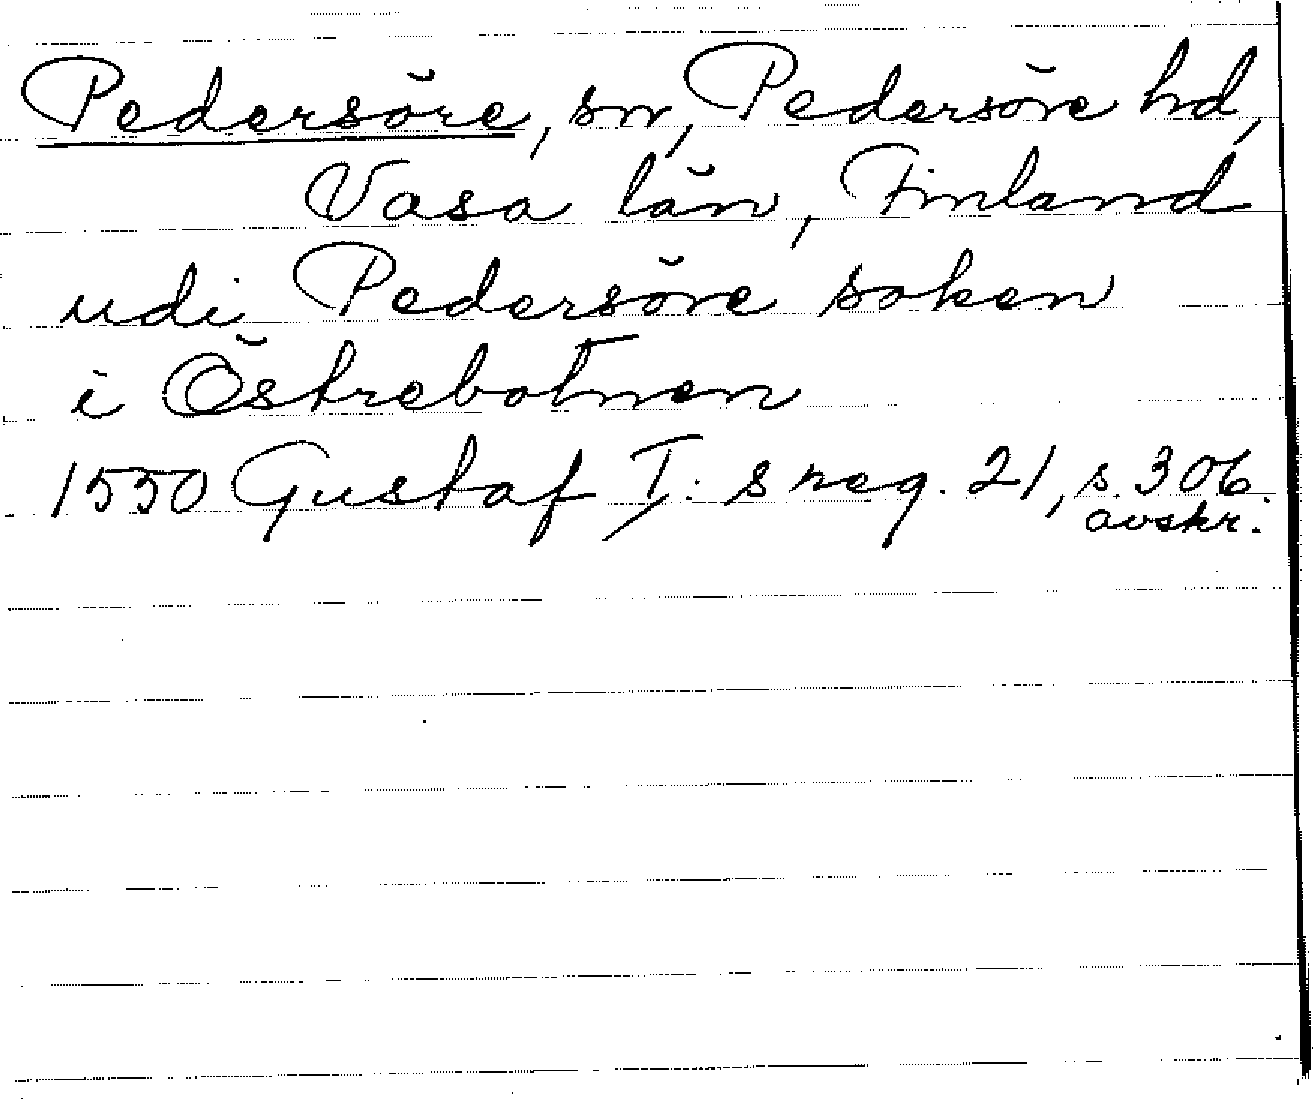 Pedersöre, sn, Pedersöre hd,
Vasa län, Finland
udi Pedersöre soken
i Östrebotnen
1550 Gustaf I:s reg. 21, s. 306.
avskr.